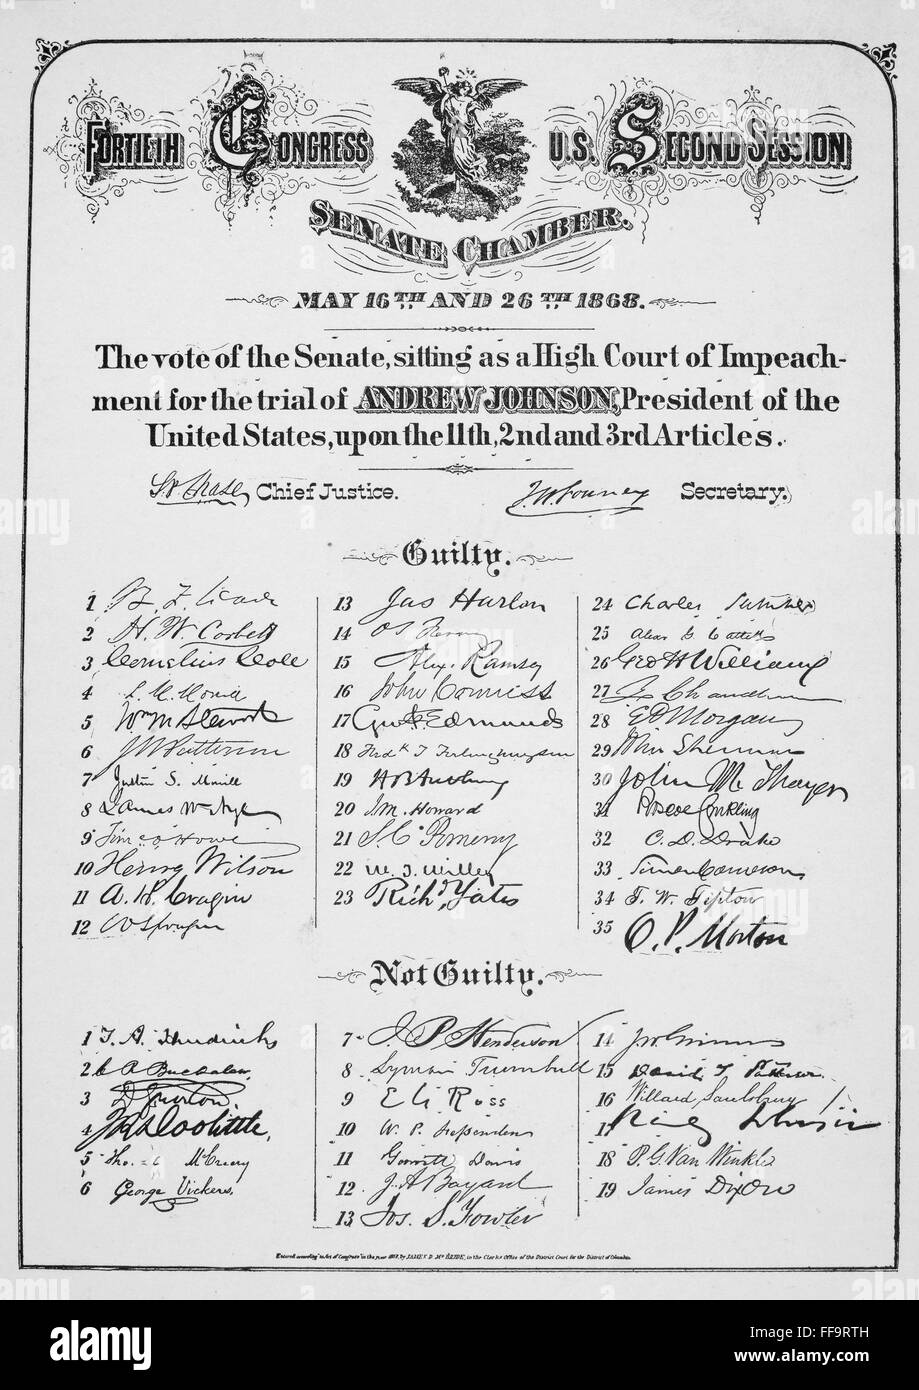 FORTIETH CONGRESS U.S. SECOND SESSION
SENATE CHAMBER.
MAY 16TH AND 26TH 1868.
The vote of the Senate, sitting as a High Court of Impeach-
ment for the trial of ANDREW JOHNSON, President of the
United States, upon the 11th, 2nd and 3rd Articles.
S. P. Chase, Chief Justice.
J. W. Forney Secretary.
Guilty.
1 B. F. Wade
2 H. W. Corbett
3 Cornelius Cole
4 L. M. Morrill
5 Wm M Stewart
6 J W Patterson
7 Justin S. Morrill
8 James W. Nye
9 Timo O Howe
10 Henry Wilson
11 A. H. Cragin
12 W Sprague
13 Jas Harlan
14 O S Ferry
15 Alex. Ramsey
16 John Conness
17 Geo F. Edmunds
18 Fredk T Frelinghuysen
19 H B Anthony
20 J. M. Howard
21 S. C. Pomeroy
22 W. T. Willey
23 Richd Yates
24 Charles Sumner
25 Alex G Cattell
26 Geo H Williams
27 Z Chandler
28 E D Morgan
29 John Sherman
30 John M. Thayer
31 Roscoe Conkling
32 C. D. Drake
33 Simon Cameron
34 T. W. Tipton
35 O. P. Morton
Not Guilty.
1 T. A. Hendricks
2 C R Buckalew
3 D S Norton
4 J R Doolittle,
5 Tho. C McCreery
6 George Vickers.
7 J. B Henderson
8 Lyman Trumbull
9 E G Ross
10 W. P. Fessenden
11 Garrett Davis
12 J. A Bayard
13 Jos. S. Fowler
14 J W Grimes
15 David T Patterson
16 Willard Saulsbury
17 Reverdy Johnson
18 P. G. Van Winkle
19 James Dixon
Entered according to Act of Congress in the year 1868, by JAMES D. McBRIDE, in the Clerks Office of the District Court for the District of Columbia.
alamy
Image ID: FF9RTH
www.alamy.com